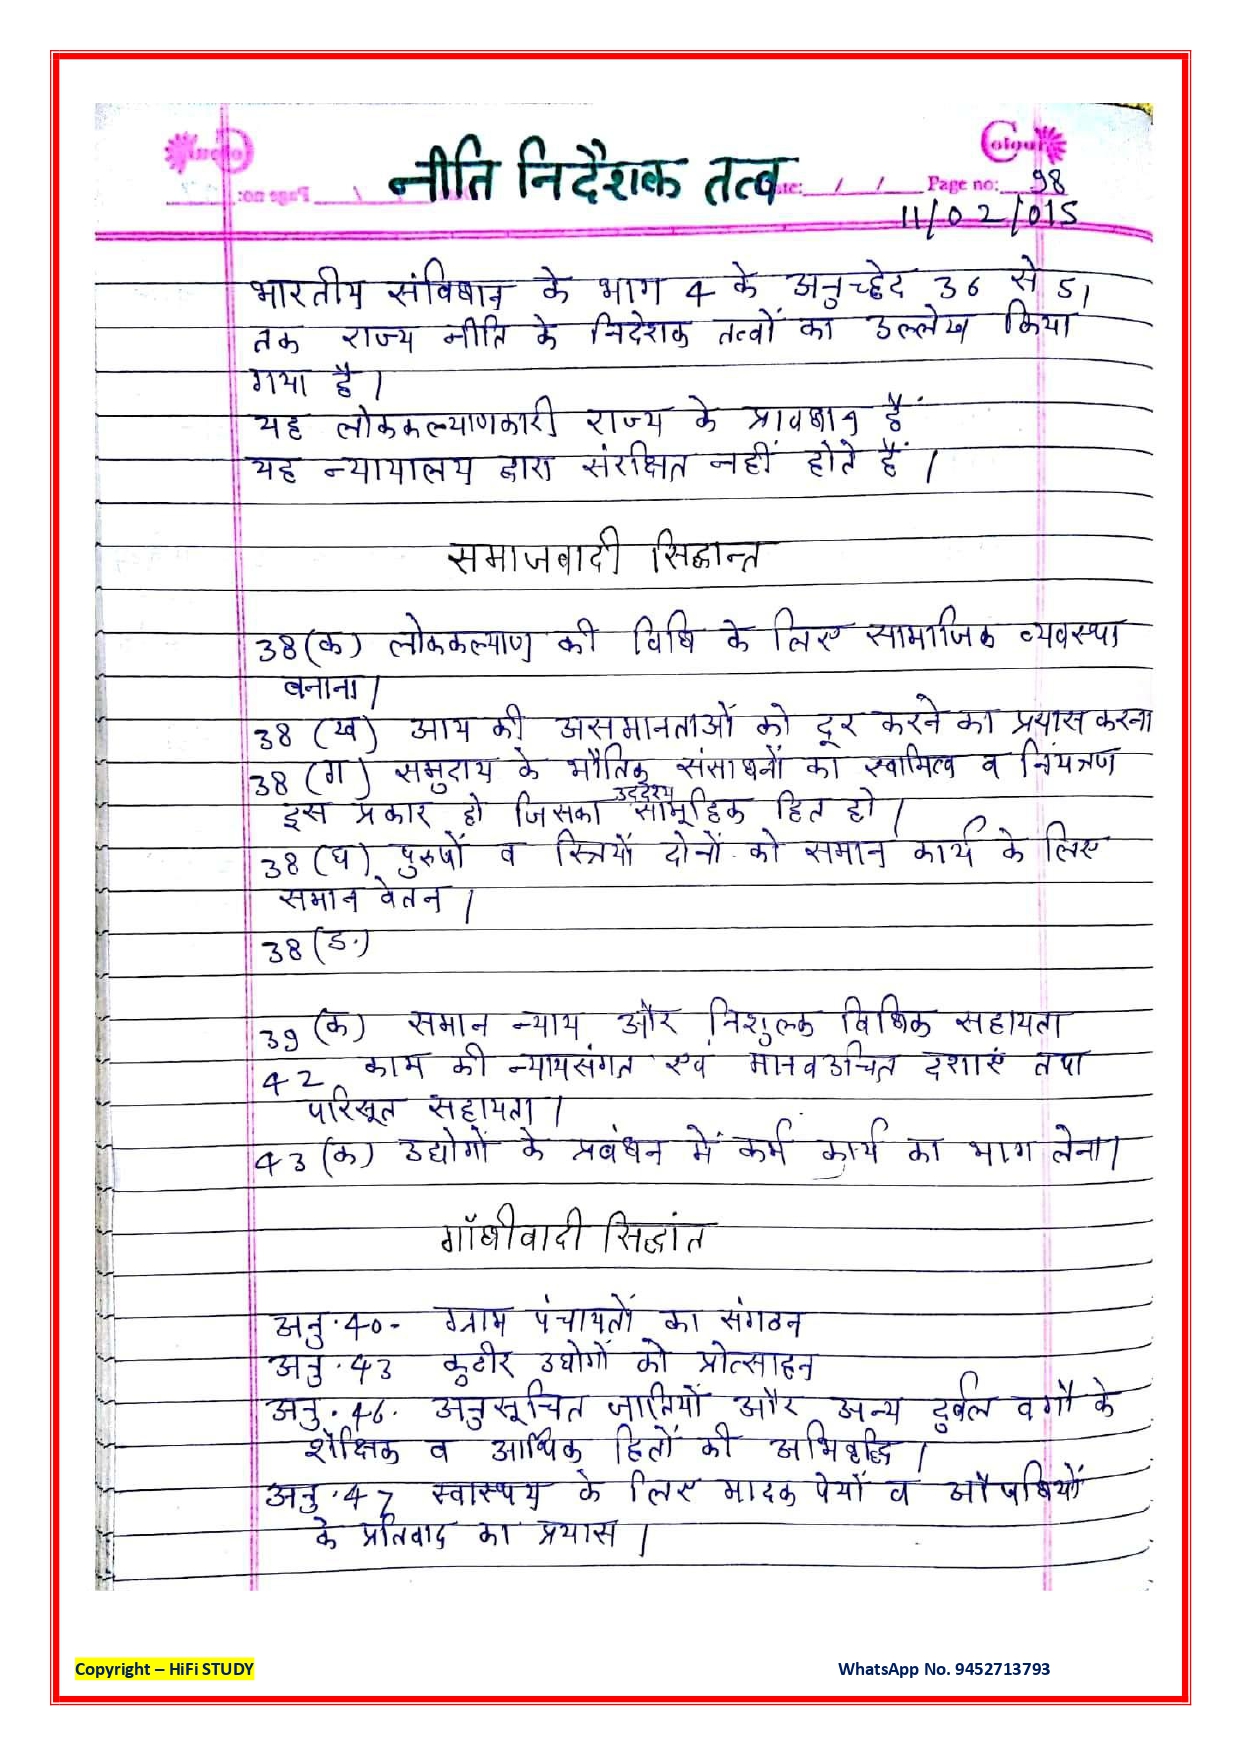 Colour
नीति निर्देशक तत्व
Page no: 98
11/02/015
भारतीय संविधान के भाग 4 के अनुच्छेद 36 से 51
तक राज्य नीति के निदेशक तत्वों का उल्लेख किया
गया है।
यह लोककल्याणकारी राज्य के प्रावधान हैं
यह न्यायालय द्वारा संरक्षित नहीं होते हैं।
समाजवादी सिद्धान्त
38(क) लोककल्याण की विधि के लिए सामाजिक व्यवस्था
बनाना।
38 (ख) आय की असमानताओं को दूर करने का प्रयास करना
38 (ग) समुदाय के भौतिक संसाधनों का स्वामित्व व नियंत्रण
इस प्रकार हो जिसका उद्देश्य सामूहिक हित हो।
38 (घ) पुरुषों व स्त्रियों दोनों को समान कार्य के लिए
समान वेतन।
38 (ड.)
39 (क) समान न्याय और निशुल्क विधिक सहायता
42 काम की न्यायसंगत एवं मानवउचित दशाएं तथा
परिसूत सहायता।
43 (क) उद्योगों के प्रबंधन में कर्म कार्य का भाग लेना।
गाँधीवादी सिद्धांत
अनु.40- ग्राम पंचायतों का संगठन
अनु.43 कुटीर उद्योगों को प्रोत्साहन
अनु.46. अनुसूचित जातियों और अन्य दुर्बल वर्गों के
शैक्षिक व आर्थिक हितों की अभिवृद्धि।
अनु.47 स्वास्थ्य के लिए मादक पेयों व औषधियों
के प्रतिवाद का प्रयास।
Copyright – HiFi STUDY WhatsApp No. 9452713793